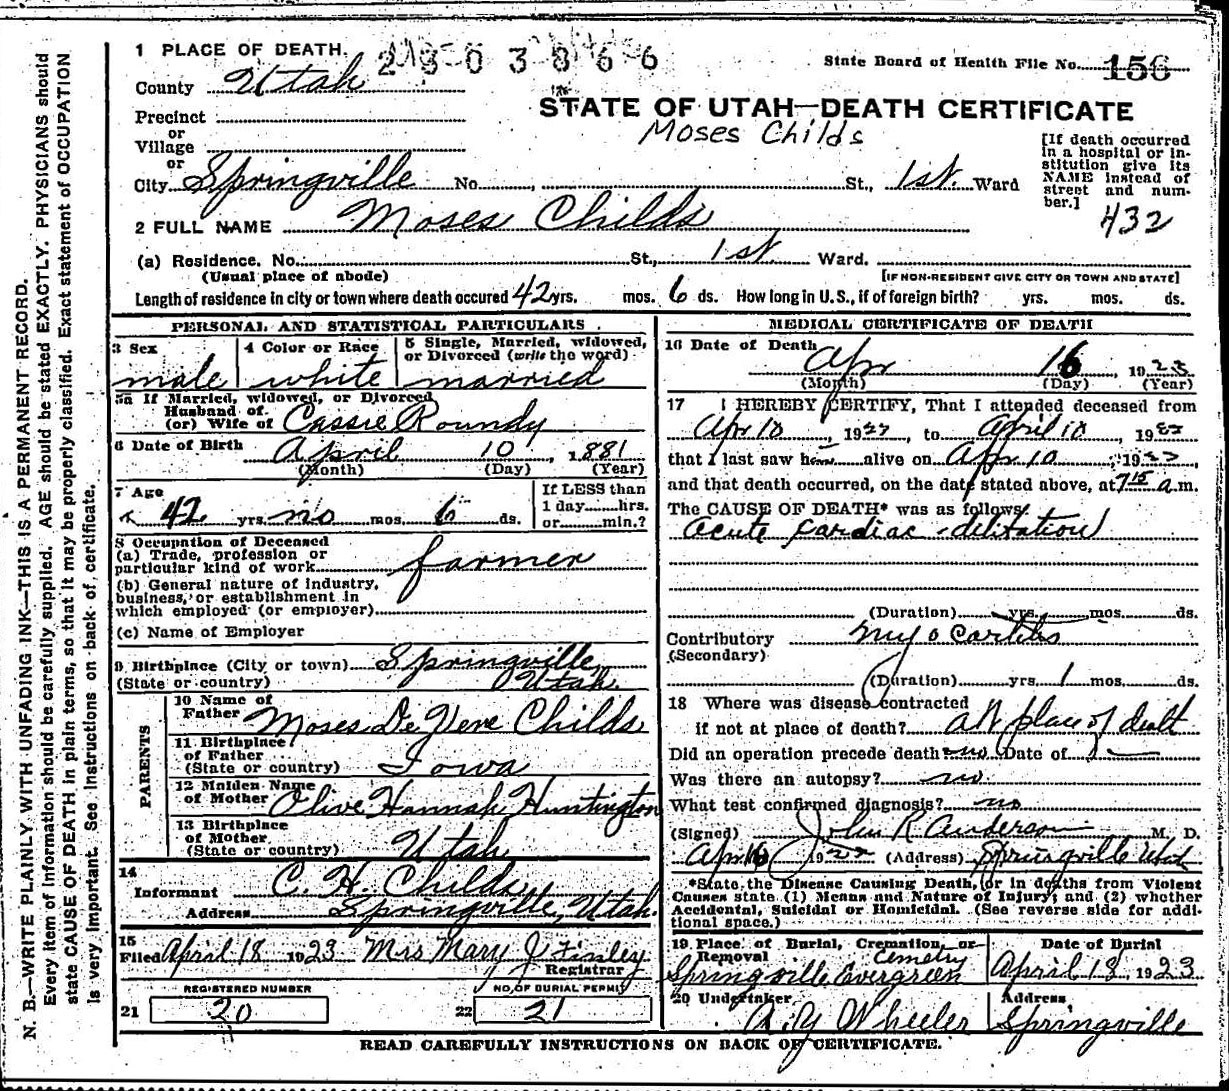 1 PLACE OF DEATH. 2303866
State Board of Health File No. 156
County Utah
STATE OF UTAH—DEATH CERTIFICATE
Precinct
Moses Childs
or
Village
or
City Springville No. , St., 1st. Ward
[If death occurred in a hospital or in-
stitution give its
NAME instead of
street and num-
ber.]
432
2 FULL NAME Moses Childs
(a) Residence. No. St., 1st. Ward.
(Usual place of abode) [IF NON-RESIDENT GIVE CITY OR TOWN AND STATE]
Length of residence in city or town where death occured 42 yrs. mos. 6 ds. How long in U.S., if of foreign birth? yrs. mos. ds.
PERSONAL AND STATISTICAL PARTICULARS
3 Sex 4 Color or Race 5 Single, Married, widowed,
or Divorced (write the word)
male white married
5a If Married, widowed, or Divorced
Husband of.
(or) Wife of Cassie Roundy
6 Date of Birth April 10, 1881
(Month) (Day) (Year)
7 Age
42 yrs. no mos. 6 ds.
If LESS than
1 day......hrs.
or......min.?
8 Occupation of Deceased
(a) Trade, profession or
particular kind of work farmer
(b) General nature of industry,
business, or establishment in
which employed (or employer)
(c) Name of Employer
9 Birthplace (City or town) Springville
(State or country) Utah
PARENTS
10 Name of
Father Moses De Gene Childs
11 Birthplace
of Father
(State or country) Iowa
12 Maiden Name
of Mother Olive Hannah Huntington
13 Birthplace
of Mother
(State or country) Utah
14
Informant C. H. Childs
Address Springville, Utah.
15
Filed April 18 1923 Mrs Mary J Finley
Registrar
REGISTERED NUMBER NO. OF BURIAL PERMIT
21 20 22 21
MEDICAL CERTIFICATE OF DEATH
16 Date of Death
Apr 16, 1923
(Month) (Day) (Year)
17 I HEREBY CERTIFY, That I attended deceased from
Apr 10, 19 , to April 10, 19
that I last saw h alive on Apr 10, 19
and that death occurred, on the date stated above, at 7 15 a.m.
The CAUSE OF DEATH* was as follows:
Acute cardiac dilitation
(Duration) yrs. mos. ds.
Contributory Myocartitis
(Secondary)
(Duration) yrs. 1 mos. ds.
18 Where was disease contracted
if not at place of death? at place of death
Did an operation precede death? no Date of
Was there an autopsy? no
What test confirmed diagnosis? no
(Signed) John R Anderson M. D.
Apr 16 19 (Address) Springville Utah
*State the Disease Causing Death, or in deaths from Violent
Causes state (1) Means and Nature of Injury; and (2) whether
Accidental, Suicidal or Homicidal. (See reverse side for addi-
tional space.)
19 Place of Burial, Cremation, or
Removal Cemetry
Springville Evergreen
Date of Burial
April 18 1923
20 Undertaker
A. Y Wheeler
Address
Springville
READ CAREFULLY INSTRUCTIONS ON BACK OF CERTIFICATE.
N. B.—WRITE PLAINLY WITH UNFADING INK—THIS IS A PERMANENT RECORD.
Every item of information should be carefully supplied. AGE should be stated EXACTLY. PHYSICIANS should
state CAUSE OF DEATH in plain terms, so that it may be properly classified. Exact statement of OCCUPATION
is very important. See Instructions on back of certificate.